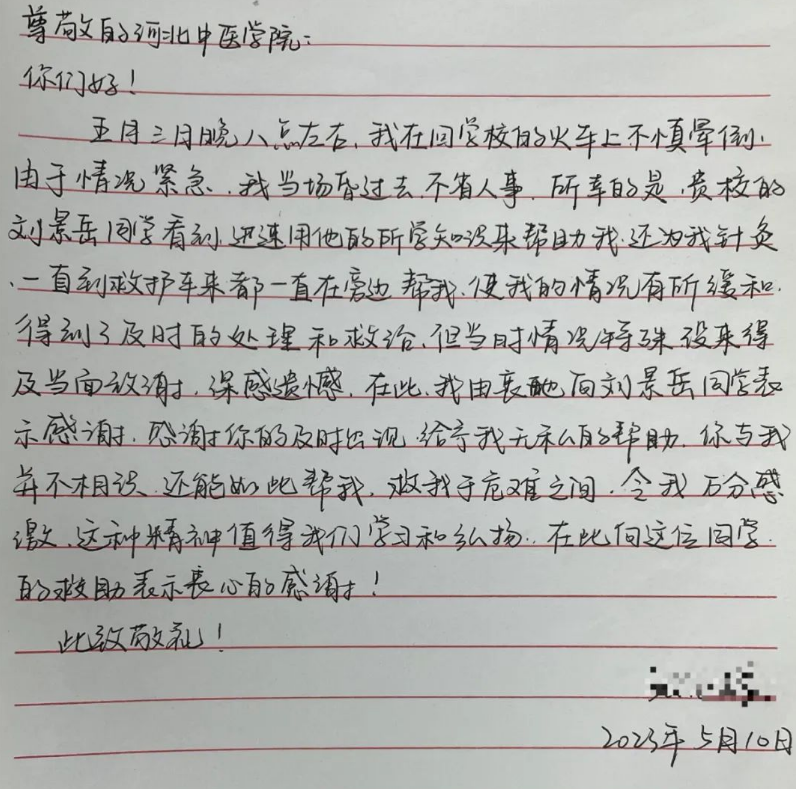 尊敬的河北中医学院：
你们好！
五月三日晚八点左右，我在回学校的火车上不慎晕倒.
由于情况紧急，我当场昏过去，不省人事．所幸的是，贵校的
刘景岳同学看到，迅速用他的所学知识来帮助我．还为我针灸
．一直到救护车来都一直在旁边帮我．使我的情况有所缓和．
得到了及时的处理和救治．但当时情况特殊没来得
及当面致谢，深感遗憾．在此，我由衷地向刘景岳同学表
示感谢．感谢你的及时出现，给予我无私的帮助．你与我
并不相识，还能如此帮我，救我于危难之间．令我万分感
激．这种精神值得我们学习和弘扬．在此向这位同学
的救助表示衷心的感谢！
此致敬礼！
2023年5月10日